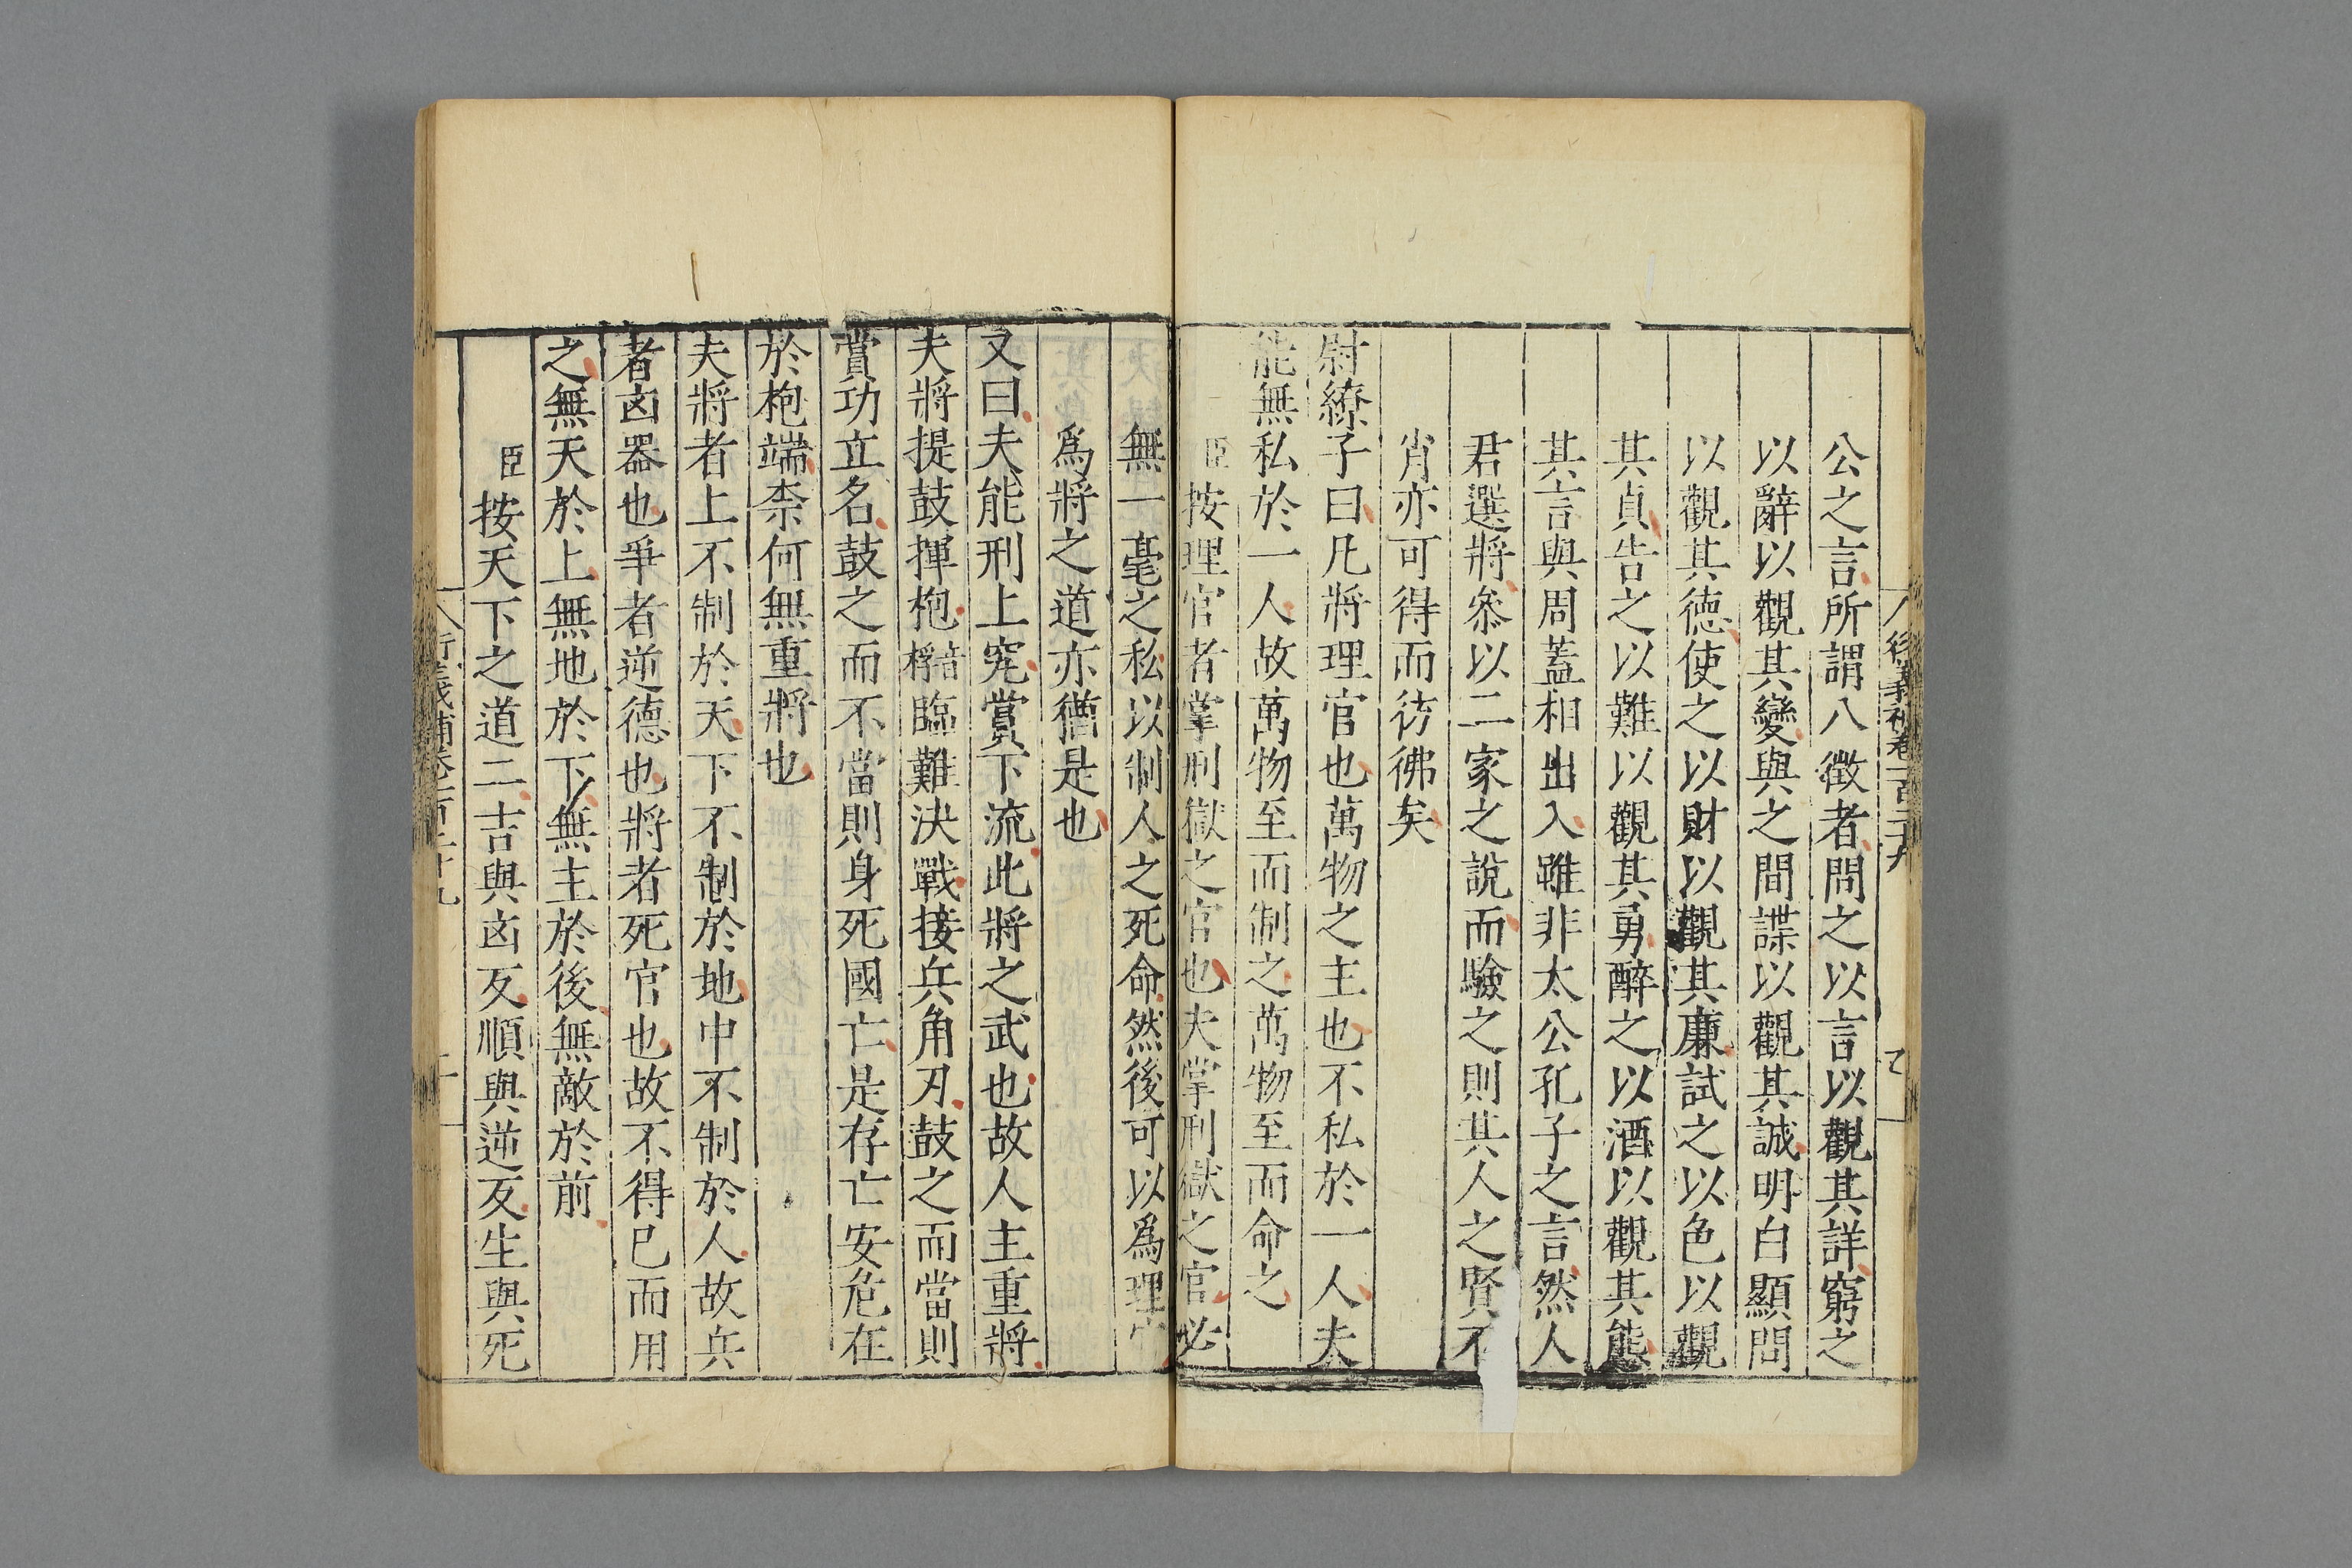 公之言所謂八徵者問之以言以觀其詳窮之
以辭以觀其變與之間諜以觀其誠明白顯問
以觀其德使之以財以觀其廉試之以色以觀
其貞告之以難以觀其勇醉之以酒以觀其態
其言與周蓋相出入雖非太公孔子之言然人
君選將叅以二家之說而驗之則其人之賢不
肖亦可得而彷彿矣
尉繚子曰凡將理官也萬物之主也不私於一人夫
能無私於一人故萬物至而制之萬物至而命之
臣按理官者掌刑獄之官也夫掌刑獄之官必
無一毫之私以制人之死命然後可以爲理官
爲將之道亦猶是也
又曰夫能刑上究賞下流此將之武也故人主重將
夫將提鼓揮枹音桴臨難決戰接兵角刃鼓之而當則
賞功立名鼓之而不當則身死國亡是存亡安危在
於枹端柰何無重將也
夫將者上不制於天下不制於地中不制於人故兵
者凶器也爭者逆德也將者死官也故不得已而用
之無天於上無地於下無主於後無敵於前
臣按天下之道二吉與凶反順與逆反生與死